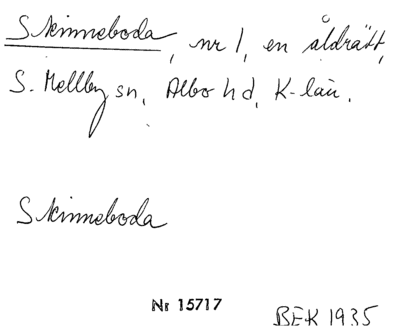 Skinneboda, nr 1, en åldrätt,
S. Mellby sn, Albo hd, K-län.
Skinneboda
Nr 15717
BEK 1935